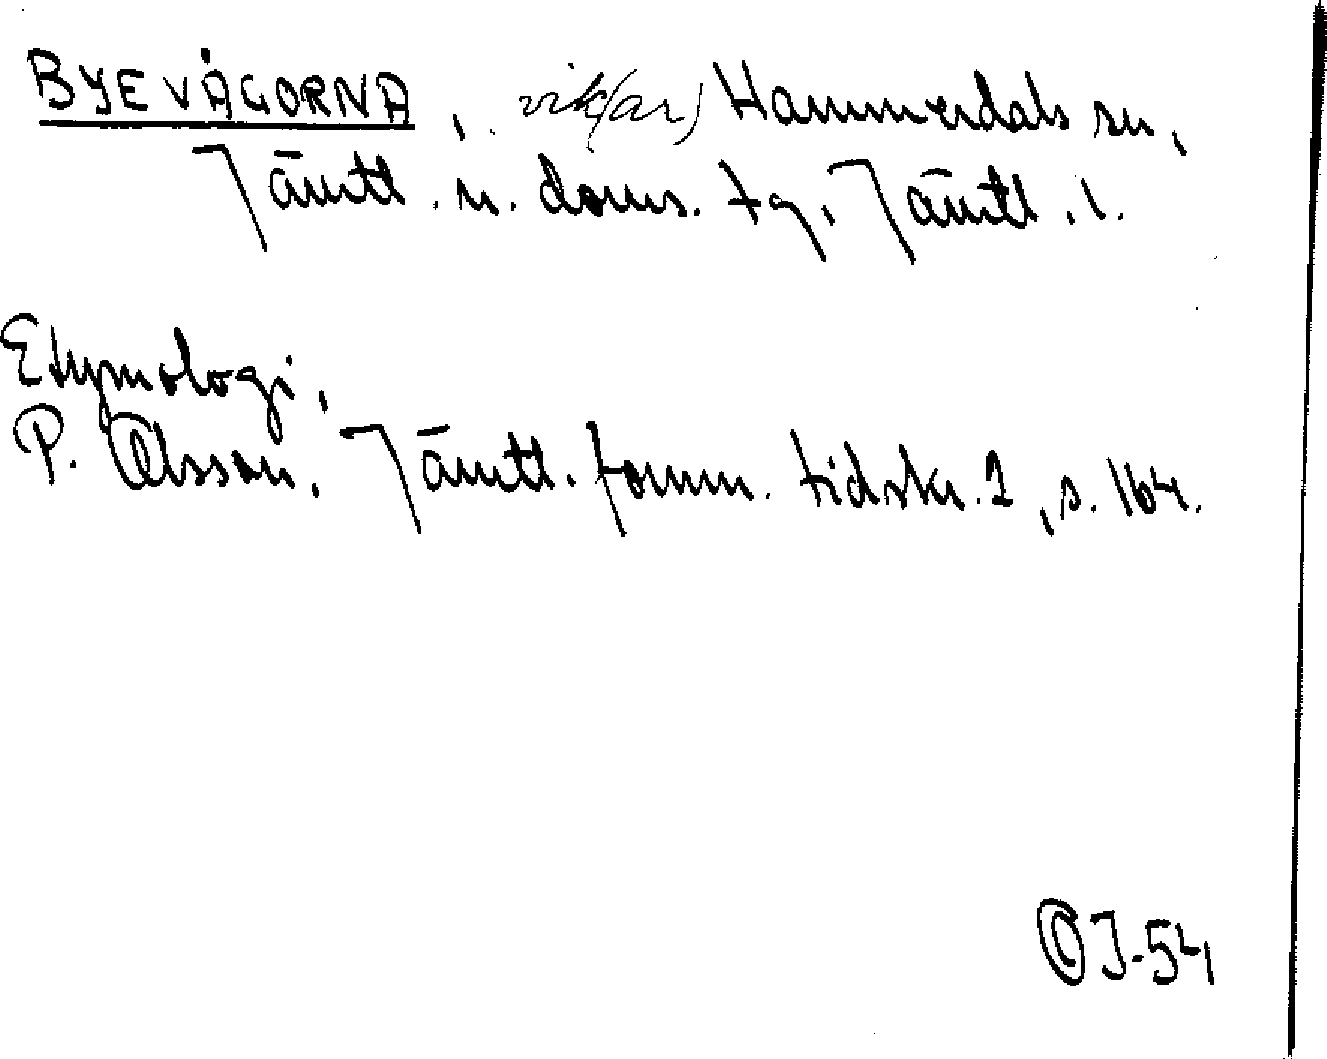 BYEVÅGORNA, vik(ar) Hammerdals sn,
Jämtl. n. doms. tg, Jämtl. l.
Etymologi,
P. Olsson, Jämtl. fornm. tidskr. 1, s. 164.
© J-54